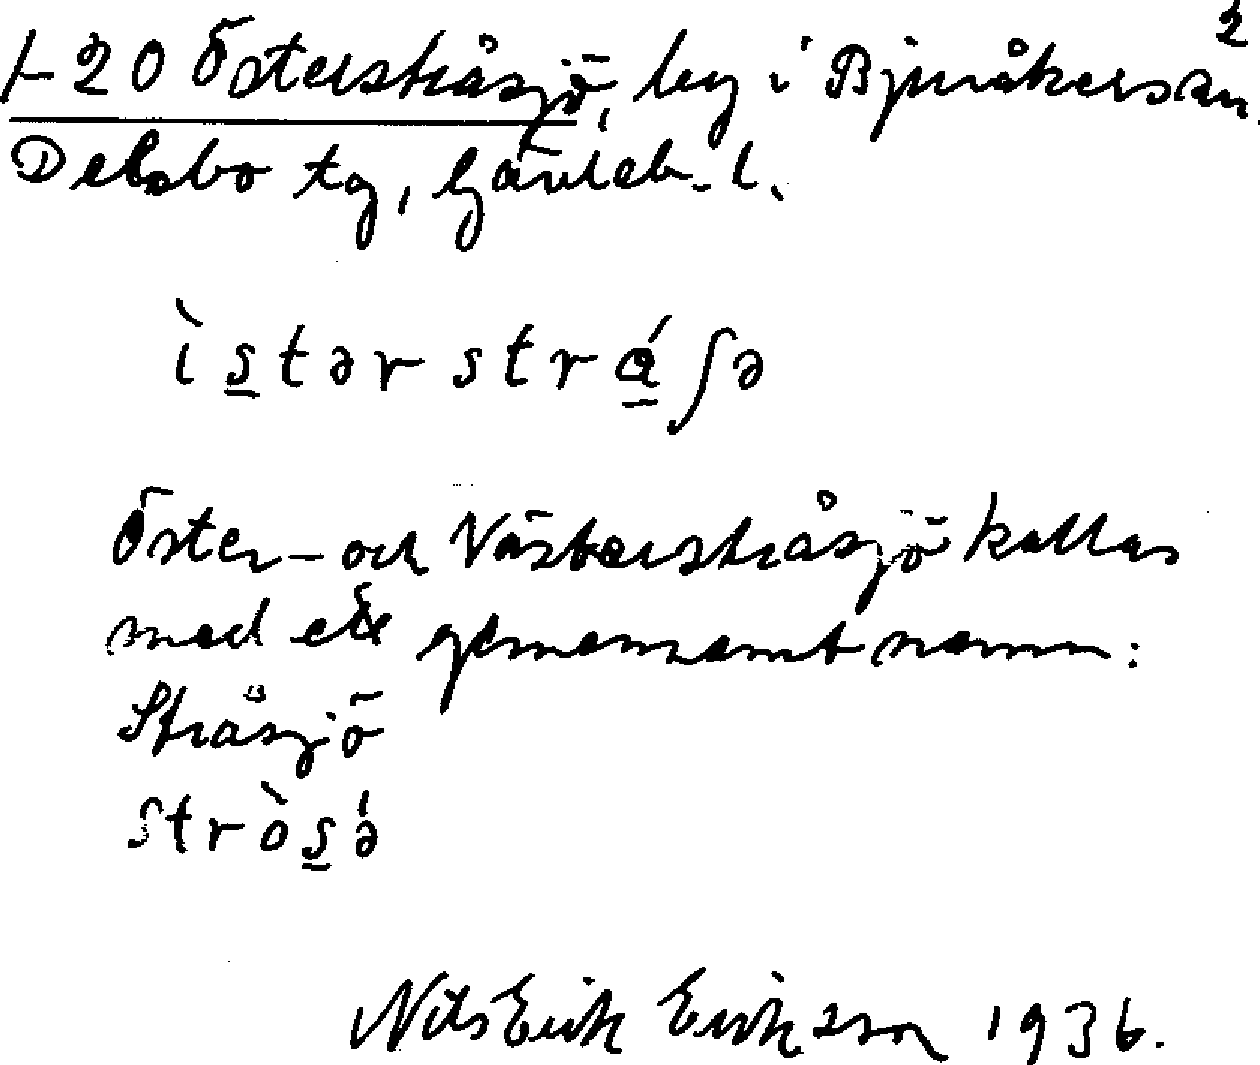 2
1-20 Österstråsjö, by i Bjuråkers sn.
Delsbo tg, Gävleb. l.
ìstər strá̱ʃə
Öster- och Västerstråsjö kallas
med ett gemensamt namn:
Stråsjö
stròs̱ə́
Nils Erik Eriksson 1936.